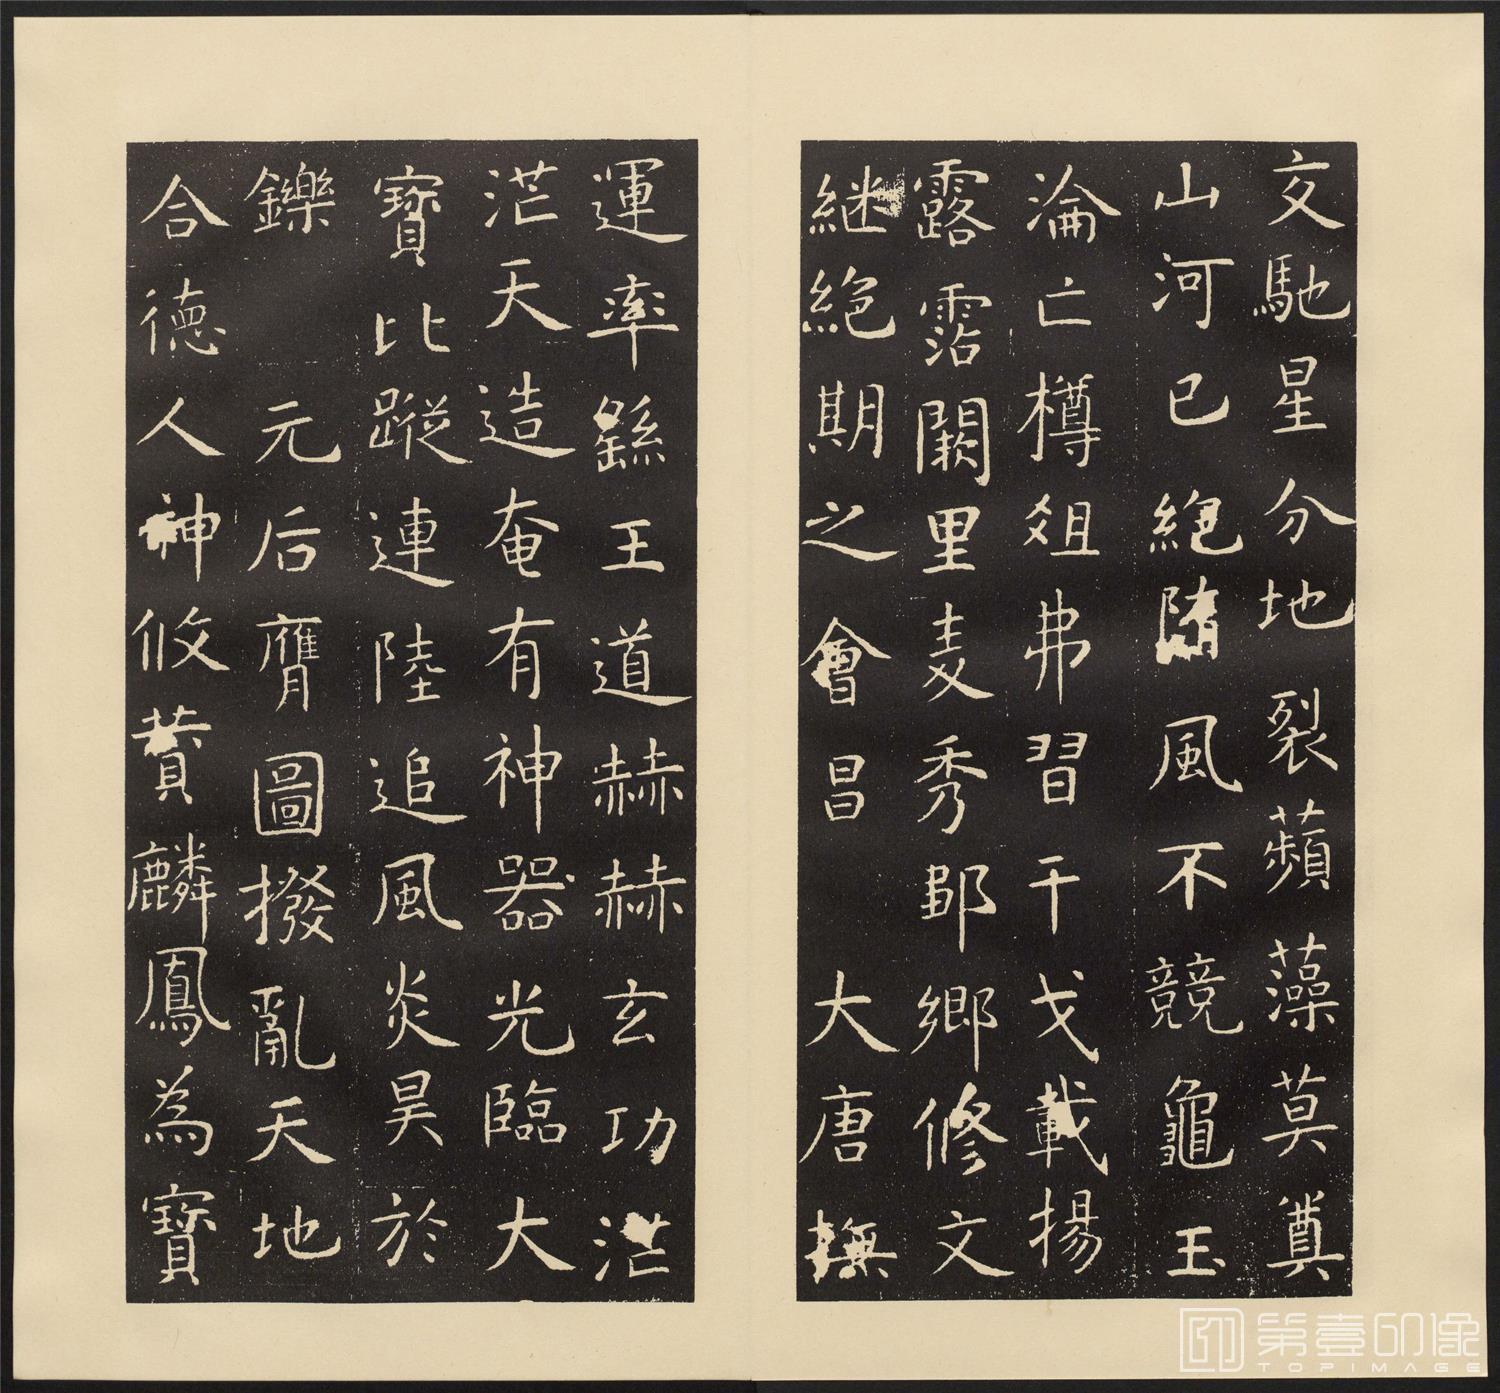 文馳星分地裂蘋藻莫奠
山河已絕隋風不競龜玉
淪亡樽俎弗習干戈載揚
露霑闕里麦秀鄒鄉修文
継絕期之會昌　大唐撫
運率繇王道赫赫玄功茫
茫天造奄有神器光臨大
寶比蹤連陸追風炎昊於
鑠　元后膺圖撥亂天地
合德人神攸賛麟鳳為寶
第壹印像
TOPIMAGE